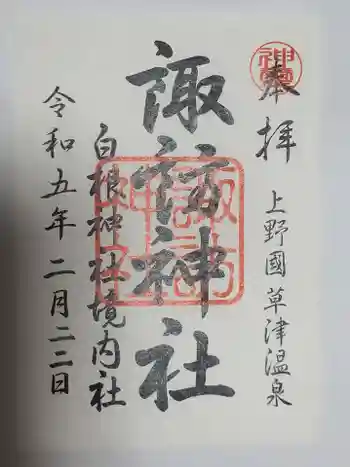 奉拝
上野國草津温泉
諏訪神社
白根神社境内社
令和五年二月二二日
諏訪神社